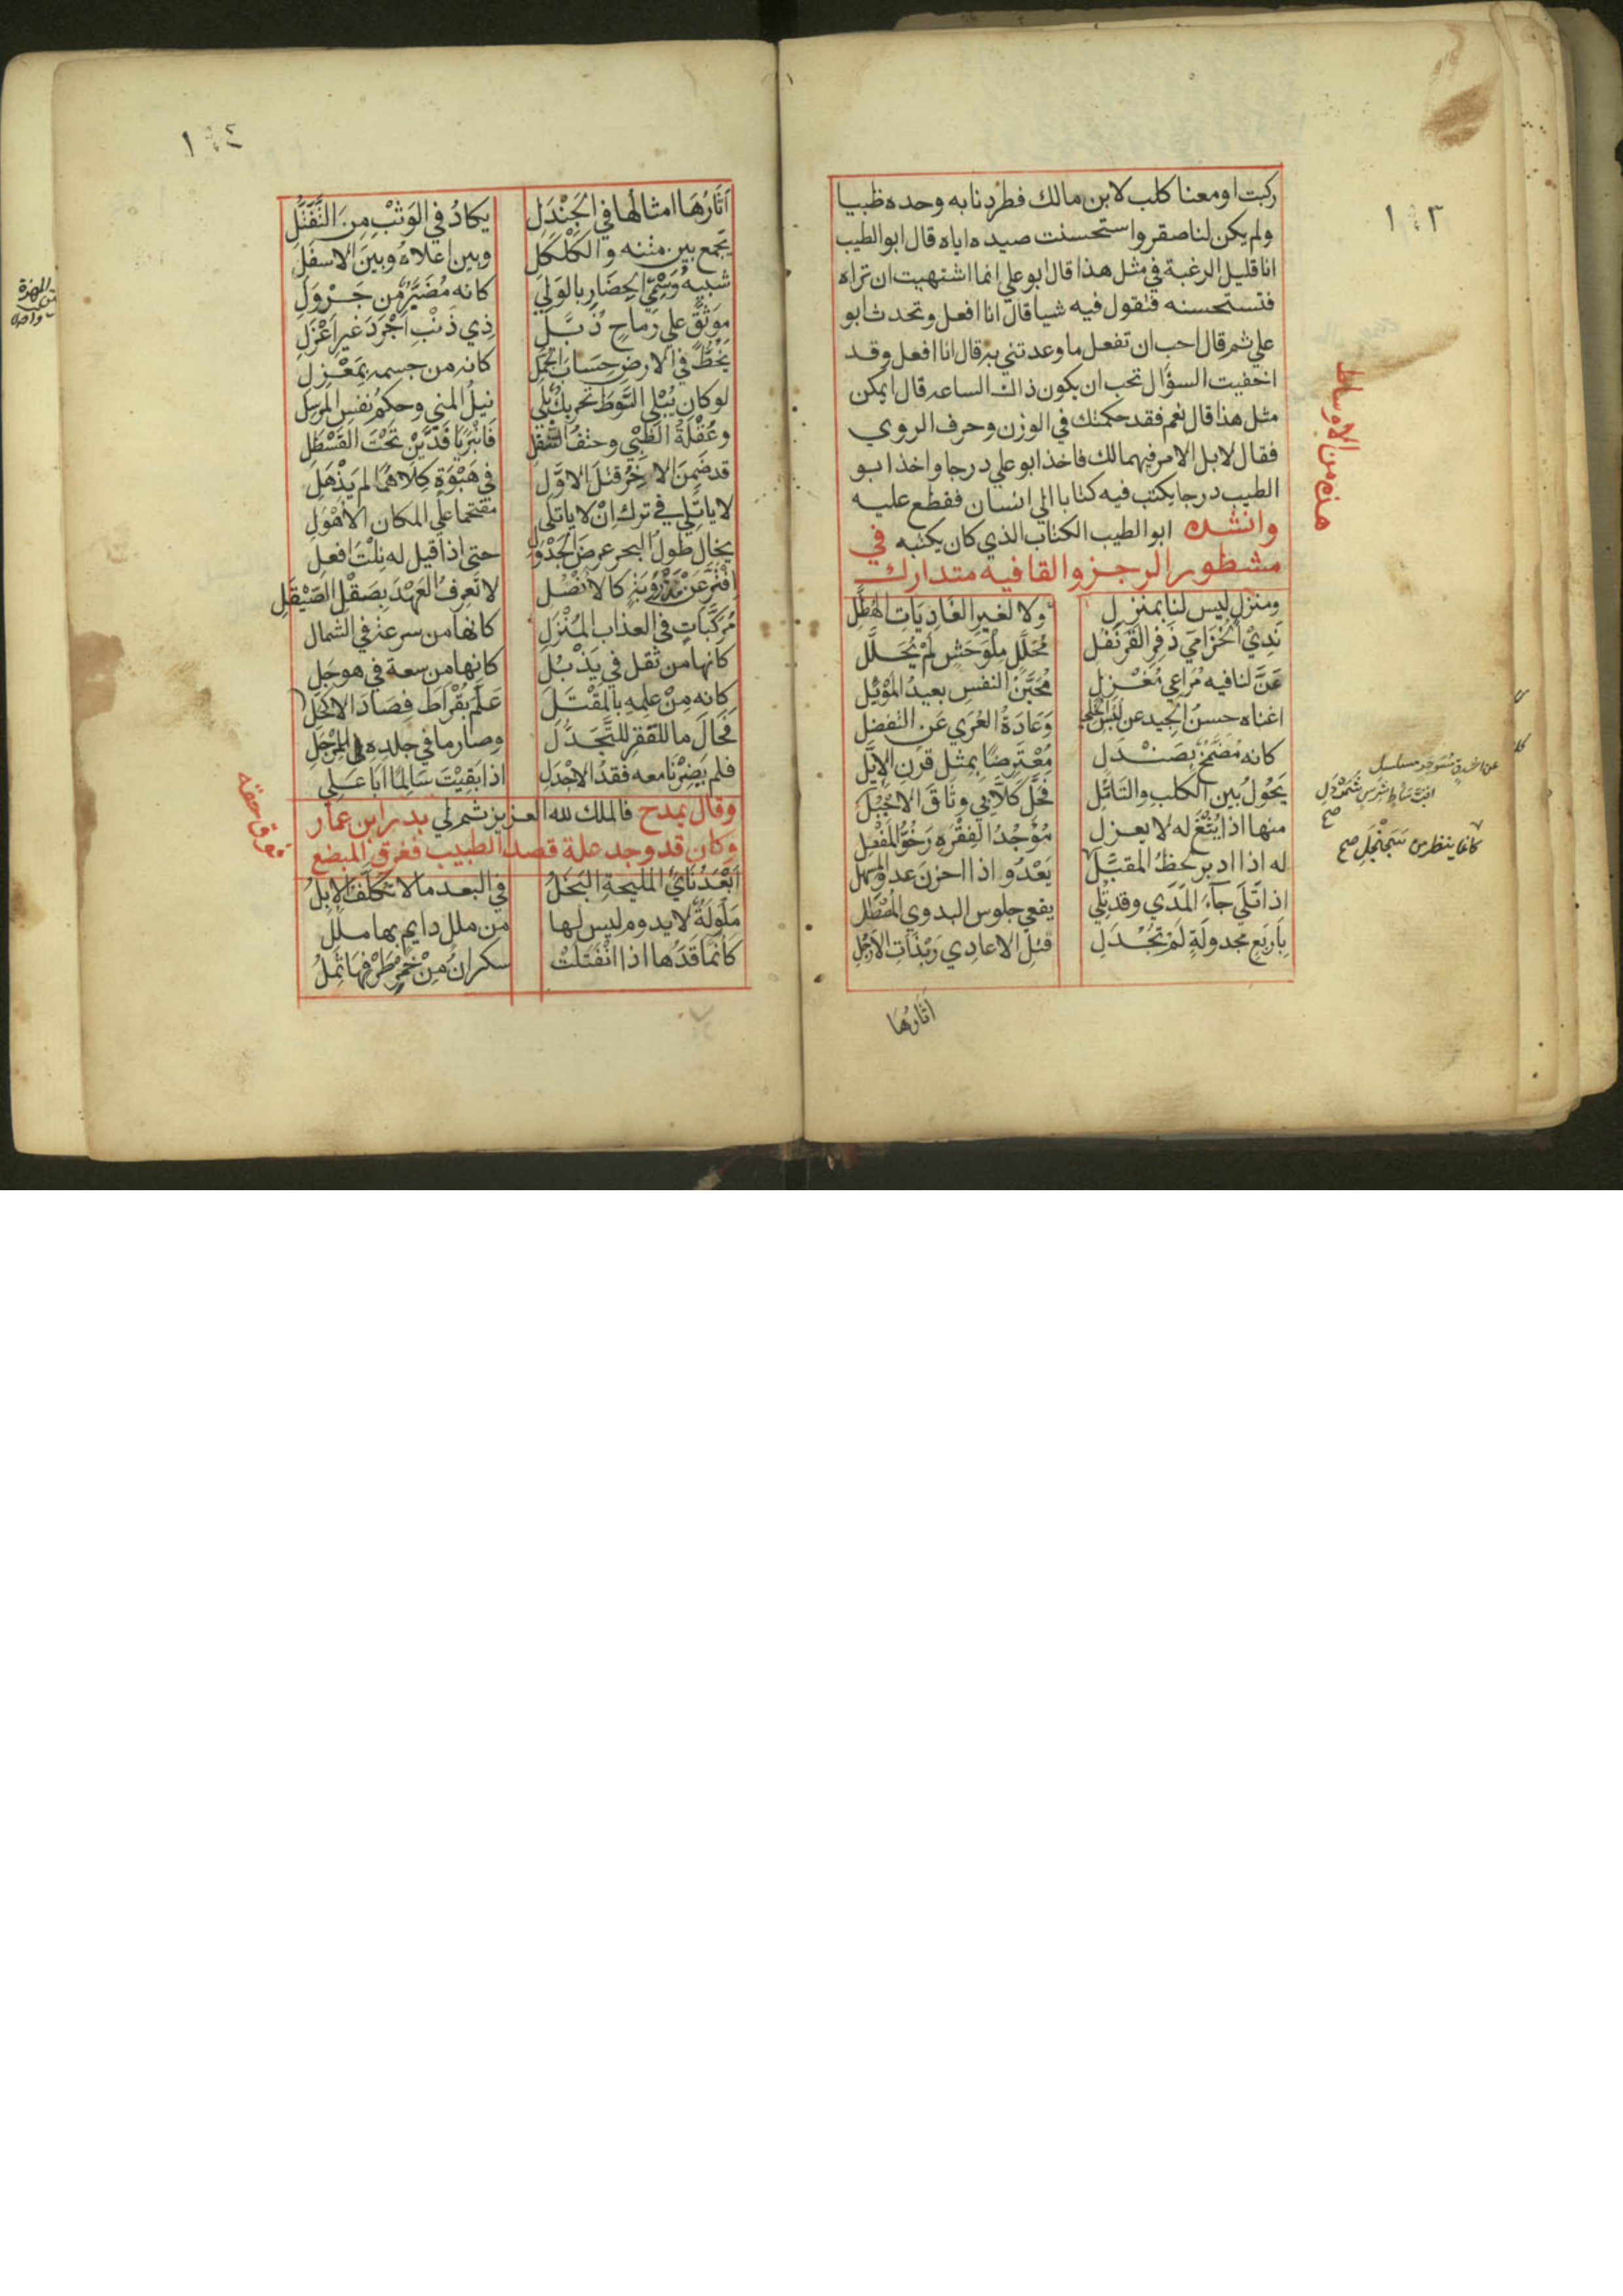 ١٠٣
ركبت او معنا كلب لابن مالك فطردنا به وحده ظبيا
ولم يكن لنا صقر واستحسنت صيده اياه قال ابو الطيب
انا قليل الرغبة في مثل هذا قال ابو علي انما اشتهيت ان تراه
فتستحسنه فتقول فيه شيا قال انا افعل وتحدث ابو
علي ثم قال احب ان تفعل ما وعدتني به قال انا افعل وقد
اخفيت السؤال تحب ان يكون ذاك الساعه قال ايمكن
مثل هذا قال نعم فقد حكمتك في الوزن وحرف الروي
فقال لا بل الامر فيهما لك فاخذ ابو علي درجا واخذ ابو
الطيب درجا يكتب فيه كتابا الي انسان فقطع عليه
وانشده ابو الطيب الكتاب الذي كان يكتبه في
مشطور الرجز والقافيه متدارك
هذه من الاوساط
ومنزل ليس لنا بمنزل ولا لغير الغاديات الهطل
ندي الخزامي ذفر القرنفل محلل ملوحش لم يحلل
عن لنا فيه مراعي مغزل محين النفس بعيد الموئل
اغناه حسن الجيد عن لبس الحلي وعادة العري عن التفضل
كانه مضمخ بصندل معترضا بمثل قرن الايل
يحول بين الكلب والتامل فحل كلابي وثاق الاحبل
عن اشدق مسوجر مسلسل
اقب ساط شرس شمردل
صح
منها اذا يثغ له لا يعزل موجد الفقره رخو المفصل
له اذا ادبر لحظ المقبل يعدو اذا احزن عدو المسهل
كانما ينظر من سجنجل صح
اذا تلي جاء المدي وقد تلي يقعي جلوس البدوي المصطلي
باربع مجدولة لم تجدل فتل الاعادي ربذات الارجل
اثارها
١٠٤
اثارها امثالها في الجندل يكاد في الوثب من التفتل
يجمع بين متنه والكلكل وبين اعلاه وبين الاسفل
شبيه وسمي الحضار بالولي كانه مضبر من جرول
موثق علي رماح ذبل ذي ذنب اجرد غير اعزل
يخط في الارض حساب الجمل كانه من جسمه بمعزل
لو كان يبلي السوط تحريك بلي نيل المني وحكم نفس المرسل
وعقلة الظبي وحتف التتفل فانبريا فذين تحت القسطل
قد ضمن الاخر قتل الاول في هبوة كلاهما لم يذهل
لا ياتلي في ترك ان لا ياتلي مقتحما علي المكان الاهول
يخال طول البحر عرض الجدول حتي اذا قيل له نلت افعل
افتر عن مذروبة كالانصل لا تعرف العهد بصقل الصيقل
مركبات في العذاب المنزل كانها من سرعة في الشمال
كانها من ثقل في يذبل كانها من سعة في هوجل
كانه من علمه بالمقتل علم بقراط فصاد الاكحل
فحال ما للقفز للتجدل وصار ما في جلده في المرجل
فلم يضرنا معه فقد الاجدل اذا بقيت سالما ابا علي
فالملك لله العزيز ثم لي
وقال يمدح بدر ابن عمار
وكان قد وجد علة فصد الطبيب فغرق المبضع
فغرق حقه
ابعد ناي المليحة البخل في البعد ما لا تكلف الابل
ملولة لا يدوم ليس لها من ملل دايم بها ملل
كانما قدها اذا انفتلت سكران من خمر طرفها ثمل